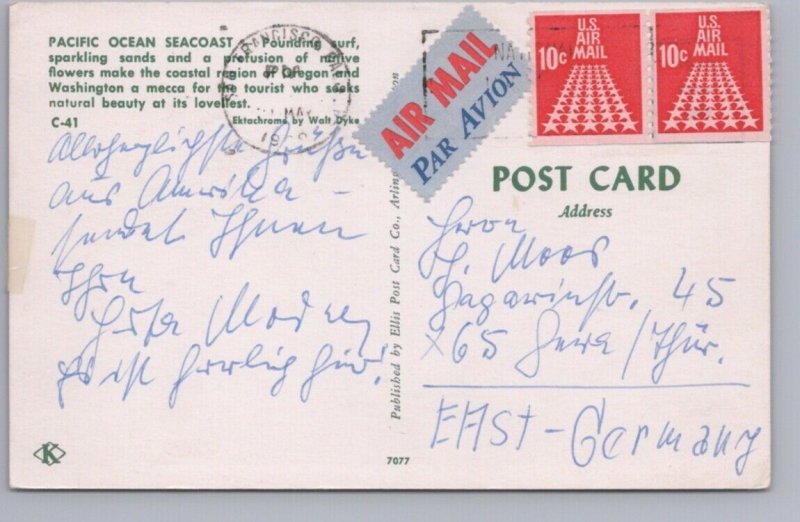 PACIFIC OCEAN SEACOAST - Pounding surf,
sparkling sands and a profusion of native
flowers make the coastal region of Oregon and
Washington a mecca for the tourist who seeks
natural beauty at its loveliest.
C-41
Ektachrome by Walt Dyke
Allerherzlichste Grüße
aus Amerika –
sendet Ihnen
Ihre
Es ist herrlich hier!
K
7077
Published by Ellis Post Card Co., Arlington
SAN FRANCISCO
MAY
AIR MAIL
PAR AVION
U.S.
AIR
MAIL
10c
U.S.
AIR
MAIL
10c
POST CARD
Address
Herrn
H. Moos
Gagarinstr. 45
x65 Gera/Thür.
EAst-Germany